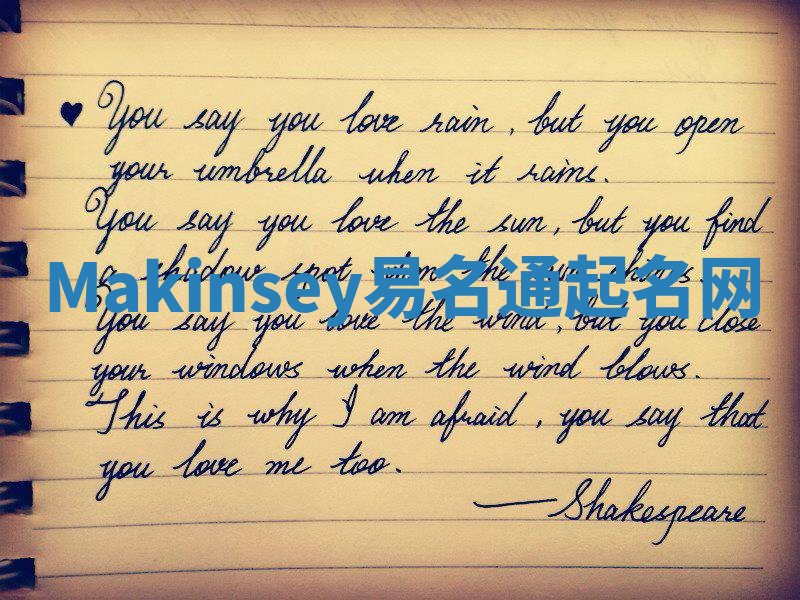 ♥ You say you love rain, but you open
your umbrella when it rains.
You say you love the sun, but you find
a shadow spot when the sun shines.
Makinsey易名通起名网
You say you love the wind, but you close
your windows when the wind blows.
This is why I am afraid, you say that
you love me too.
—Shakespeare